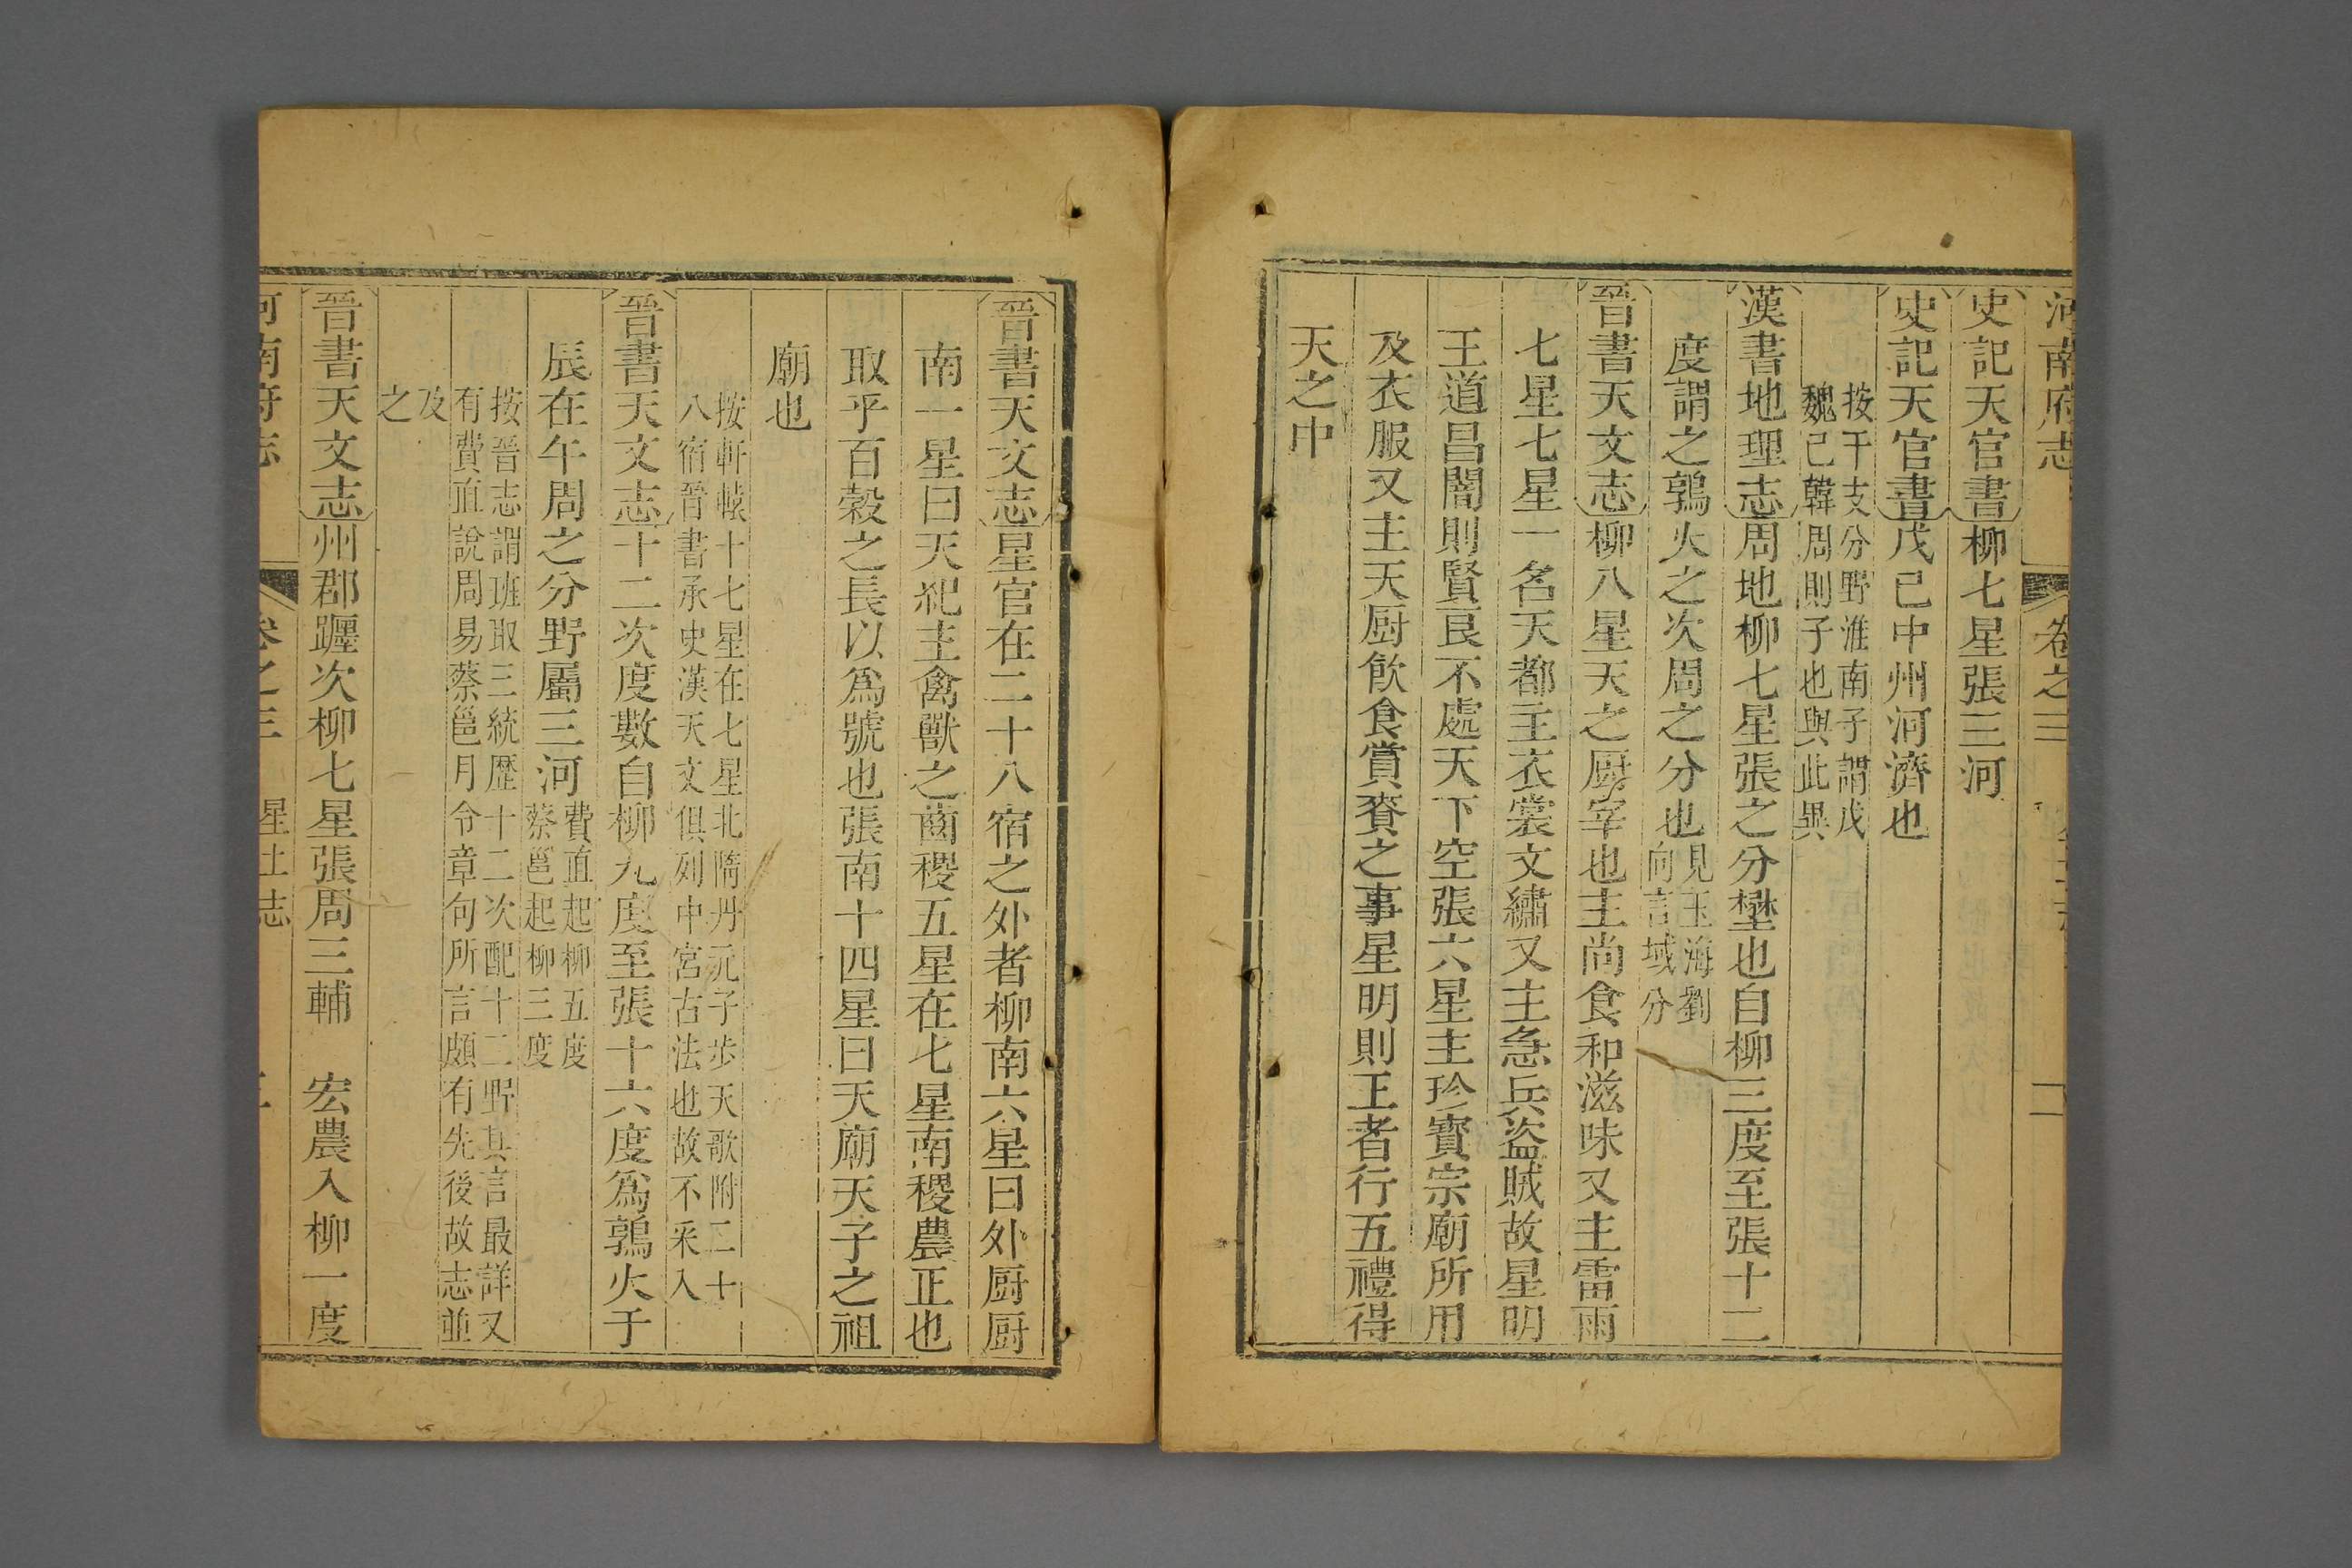 河南府志 卷之三 二
史記天官書柳七星張三河
史記天官書戊己中州河濟也
按干支分野淮南子謂戊
魏己韓周則子也與此異
漢書地理志周地柳七星張之分壄也自柳三度至張十二
度謂之鶉火之次周之分也見玉海劉
向言域分
晉書天文志柳八星天之厨宰也主尚食和滋味又主雷雨
七星七星一名天都主衣裳文繡又主急兵盜賊故星明
王道昌闇則賢良不處天下空張六星主珍寶宗廟所用
及衣服又主天厨飲食賞賚之事星明則王者行五禮得
天之中
晉書天文志星官在二十八宿之外者柳南六星曰外厨厨
南一星曰天紀主禽獸之齒稷五星在七星南稷農正也
取乎百穀之長以爲號也張南十四星曰天廟天子之祖
廟也
按軒轅十七星在七星北隋丹元子步天歌附二十
八宿晉書承史漢天文俱列中宮古法也故不采入
晉書天文志十二次度數自柳九度至張十六度爲鶉火于
辰在午周之分野屬三河費直起柳五度
蔡邕起柳三度
按晉志謂班取三統歷十二次配十二野其言最詳又
有費直說周易蔡邕月令章句所言頗有先後故志並
及
之
晉書天文志州郡躔次柳七星張周三輔 宏農入柳一度
河南府志 卷之三 星土志